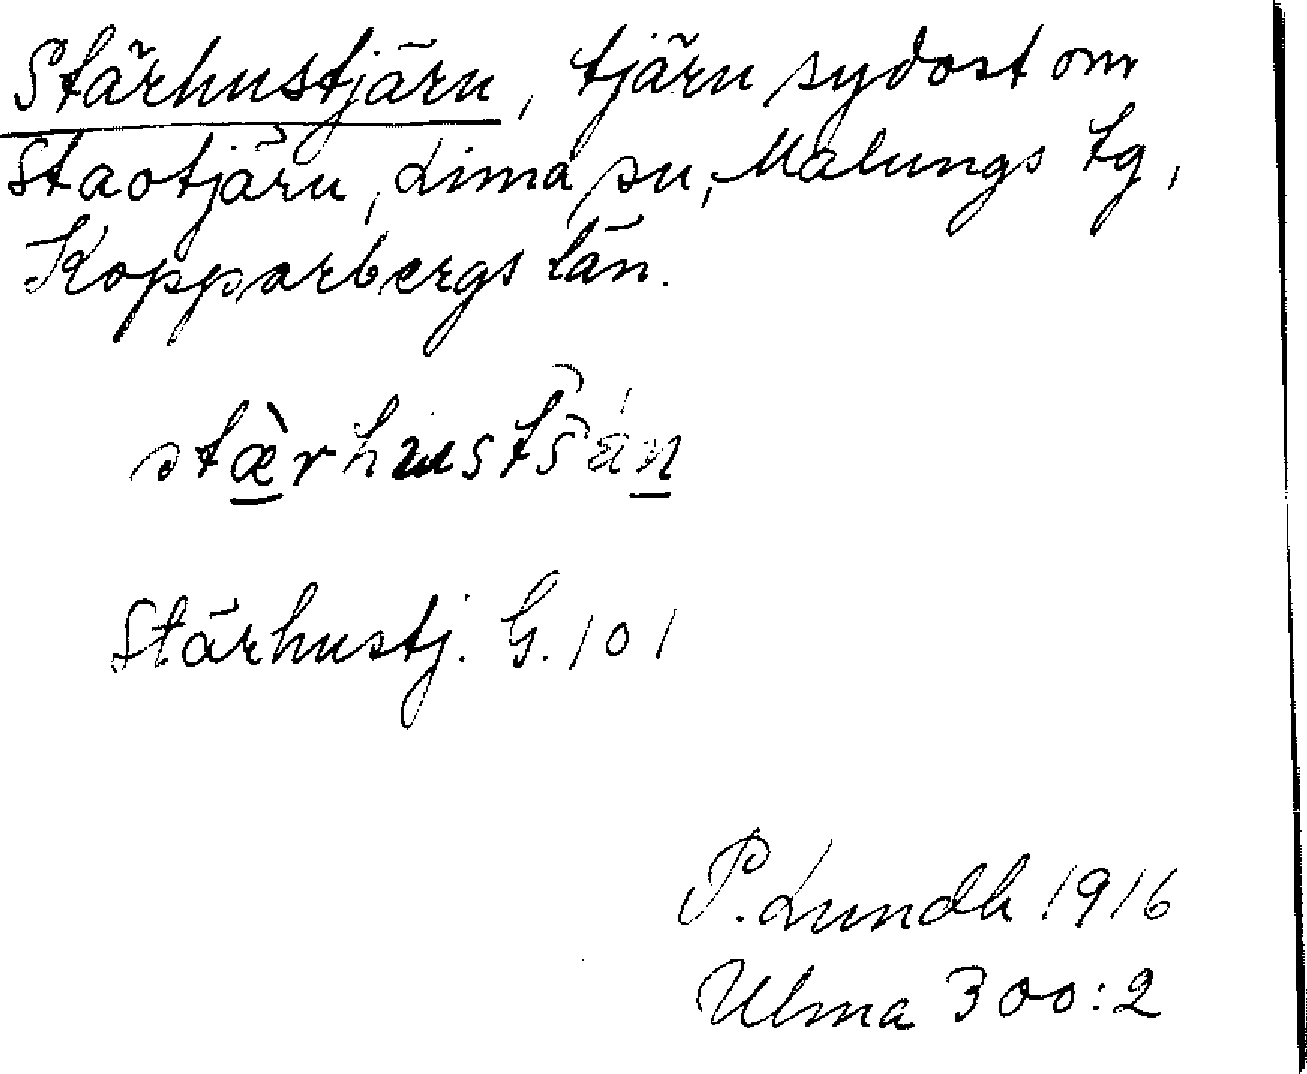 Stärhustjärn, tjärn sydost om
Staotjärn, Lima sn, Malungs tg,
Kopparbergs län.
stæ̀rhustš́än
Stärhustj. G. 101
P. Lundh 1916
Ulma 300:2